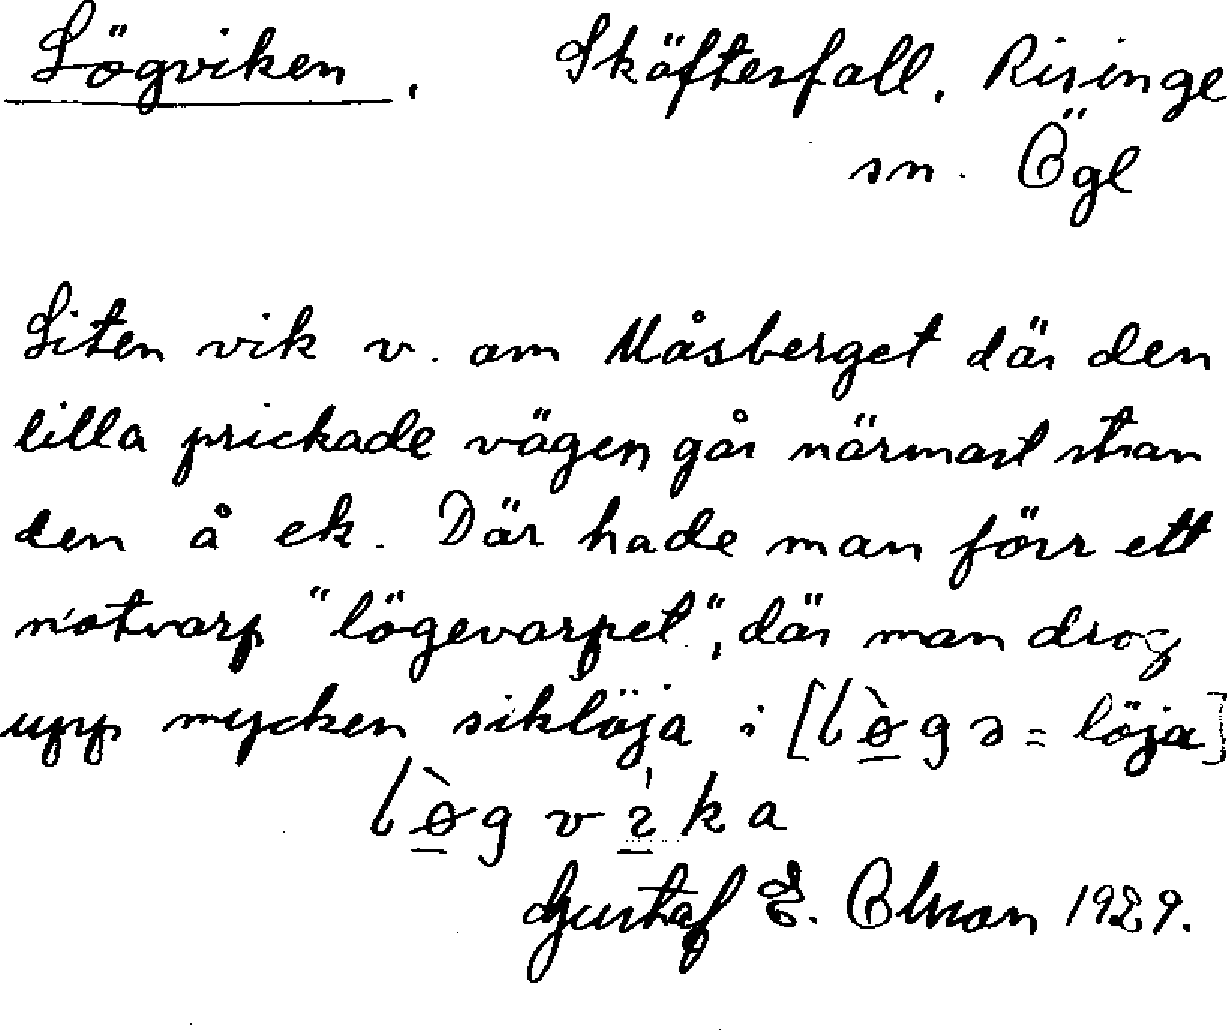 Lögviken. Skäfterfall. Risinge
sn. Ögl
Liten vik v. om Måsberget där den
lilla prickade vägen går närmast stran
den å ek. Där hade man förr ett
notvarp "lögevarpet", där man drog
upp mycken siklöja i [lø̀gə = löja]
lø̀gvika
Gustaf E. Olson 1929.